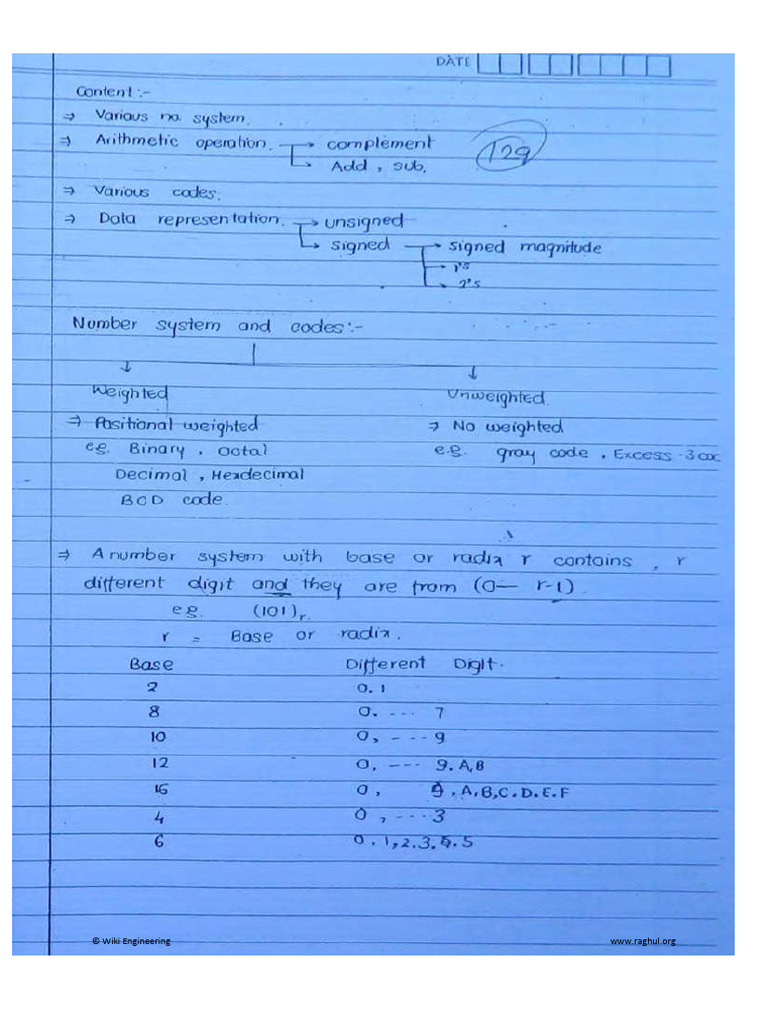 DATE
Content :-
⇒ Various no. system.
⇒ Arithmetic operation. → complement
→ Add, sub.
129
⇒ Various codes.
⇒ Data representation. → unsigned
→ signed → signed magnitude
→ 1's
→ 2's
Number system and codes :-
Weighted Unweighted
⇒ Positional weighted ⇒ No weighted
e.g. Binary, Octal e.g. gray code, Excess-3 coc
Decimal, Hexdecimal
BCD code.
⇒ A number system with base or radix r contains, r
different digit and they are from (0— r-1)
e.g. (101)r
r = Base or radix.
Base Different Digit.
2 0.1
8 0. --- 7
10 0, ---- 9
12 0, --- 9.A,B
16 0, 9,A,B,C.D.E.F
4 0, --- 3
6 0.1,2.3.4.5
© Wiki Engineering www.raghul.org